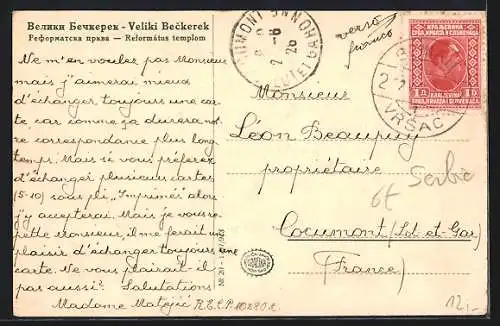 Велики Бечкерек - Veliki Bečkerek
Реформатска црква — Református templom
Ne m'en voulez pas Monsieur
mais j'aimerai mieux
d'échanger toujours une car-
te car comme ça durera no-
tre correspondance plus long-
temps. Mais si vous préférez
d'échanger plusieurs cartes
(5-10) sous pli, "Imprimés" alors
j'y accepterai. Mais je vous re-
pette Monsieur, il me ferait un
plaisir d'échanger toujours une
carte. Ne vous plairait-il
pas aussi? Salutations
Madame Matejić R.E.C.P.
verso
COCUMONT
LOT ET GARONNE
VRŠAC
КРАЉЕВИНА
СРБА, ХРВАТА И СЛОВЕНАЦА
KRALJEVINA
SRBA, HRVATA I SLOVENACA
1 Д 1 D
Monsieur
Léon Beaupuy
propriétaire
Cocumont (Lot-et-Gar)
(France)
Serbie
6t
12,-